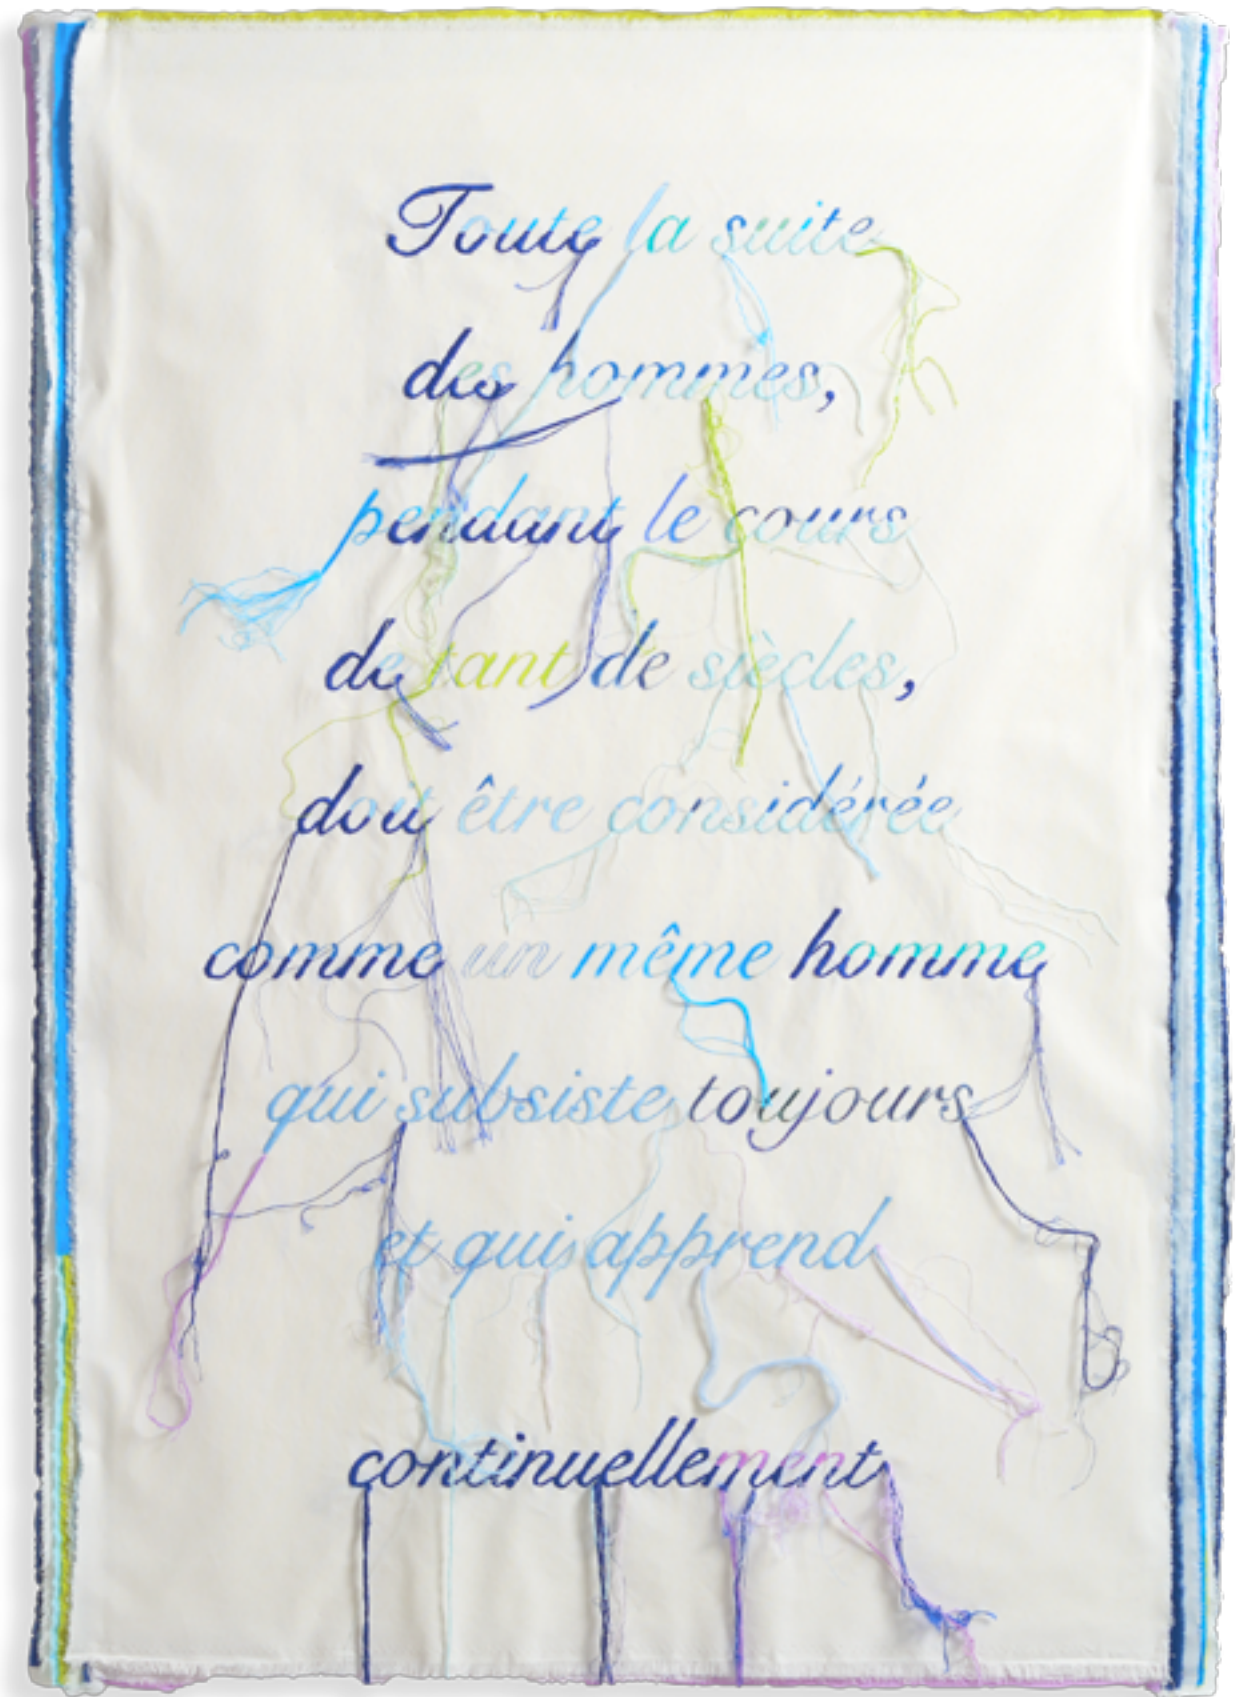 Toute la suite
des hommes,
pendant le cours
de tant de siècles,
doit être considérée
comme un même homme
qui subsiste toujours
et qui apprend
continuellement